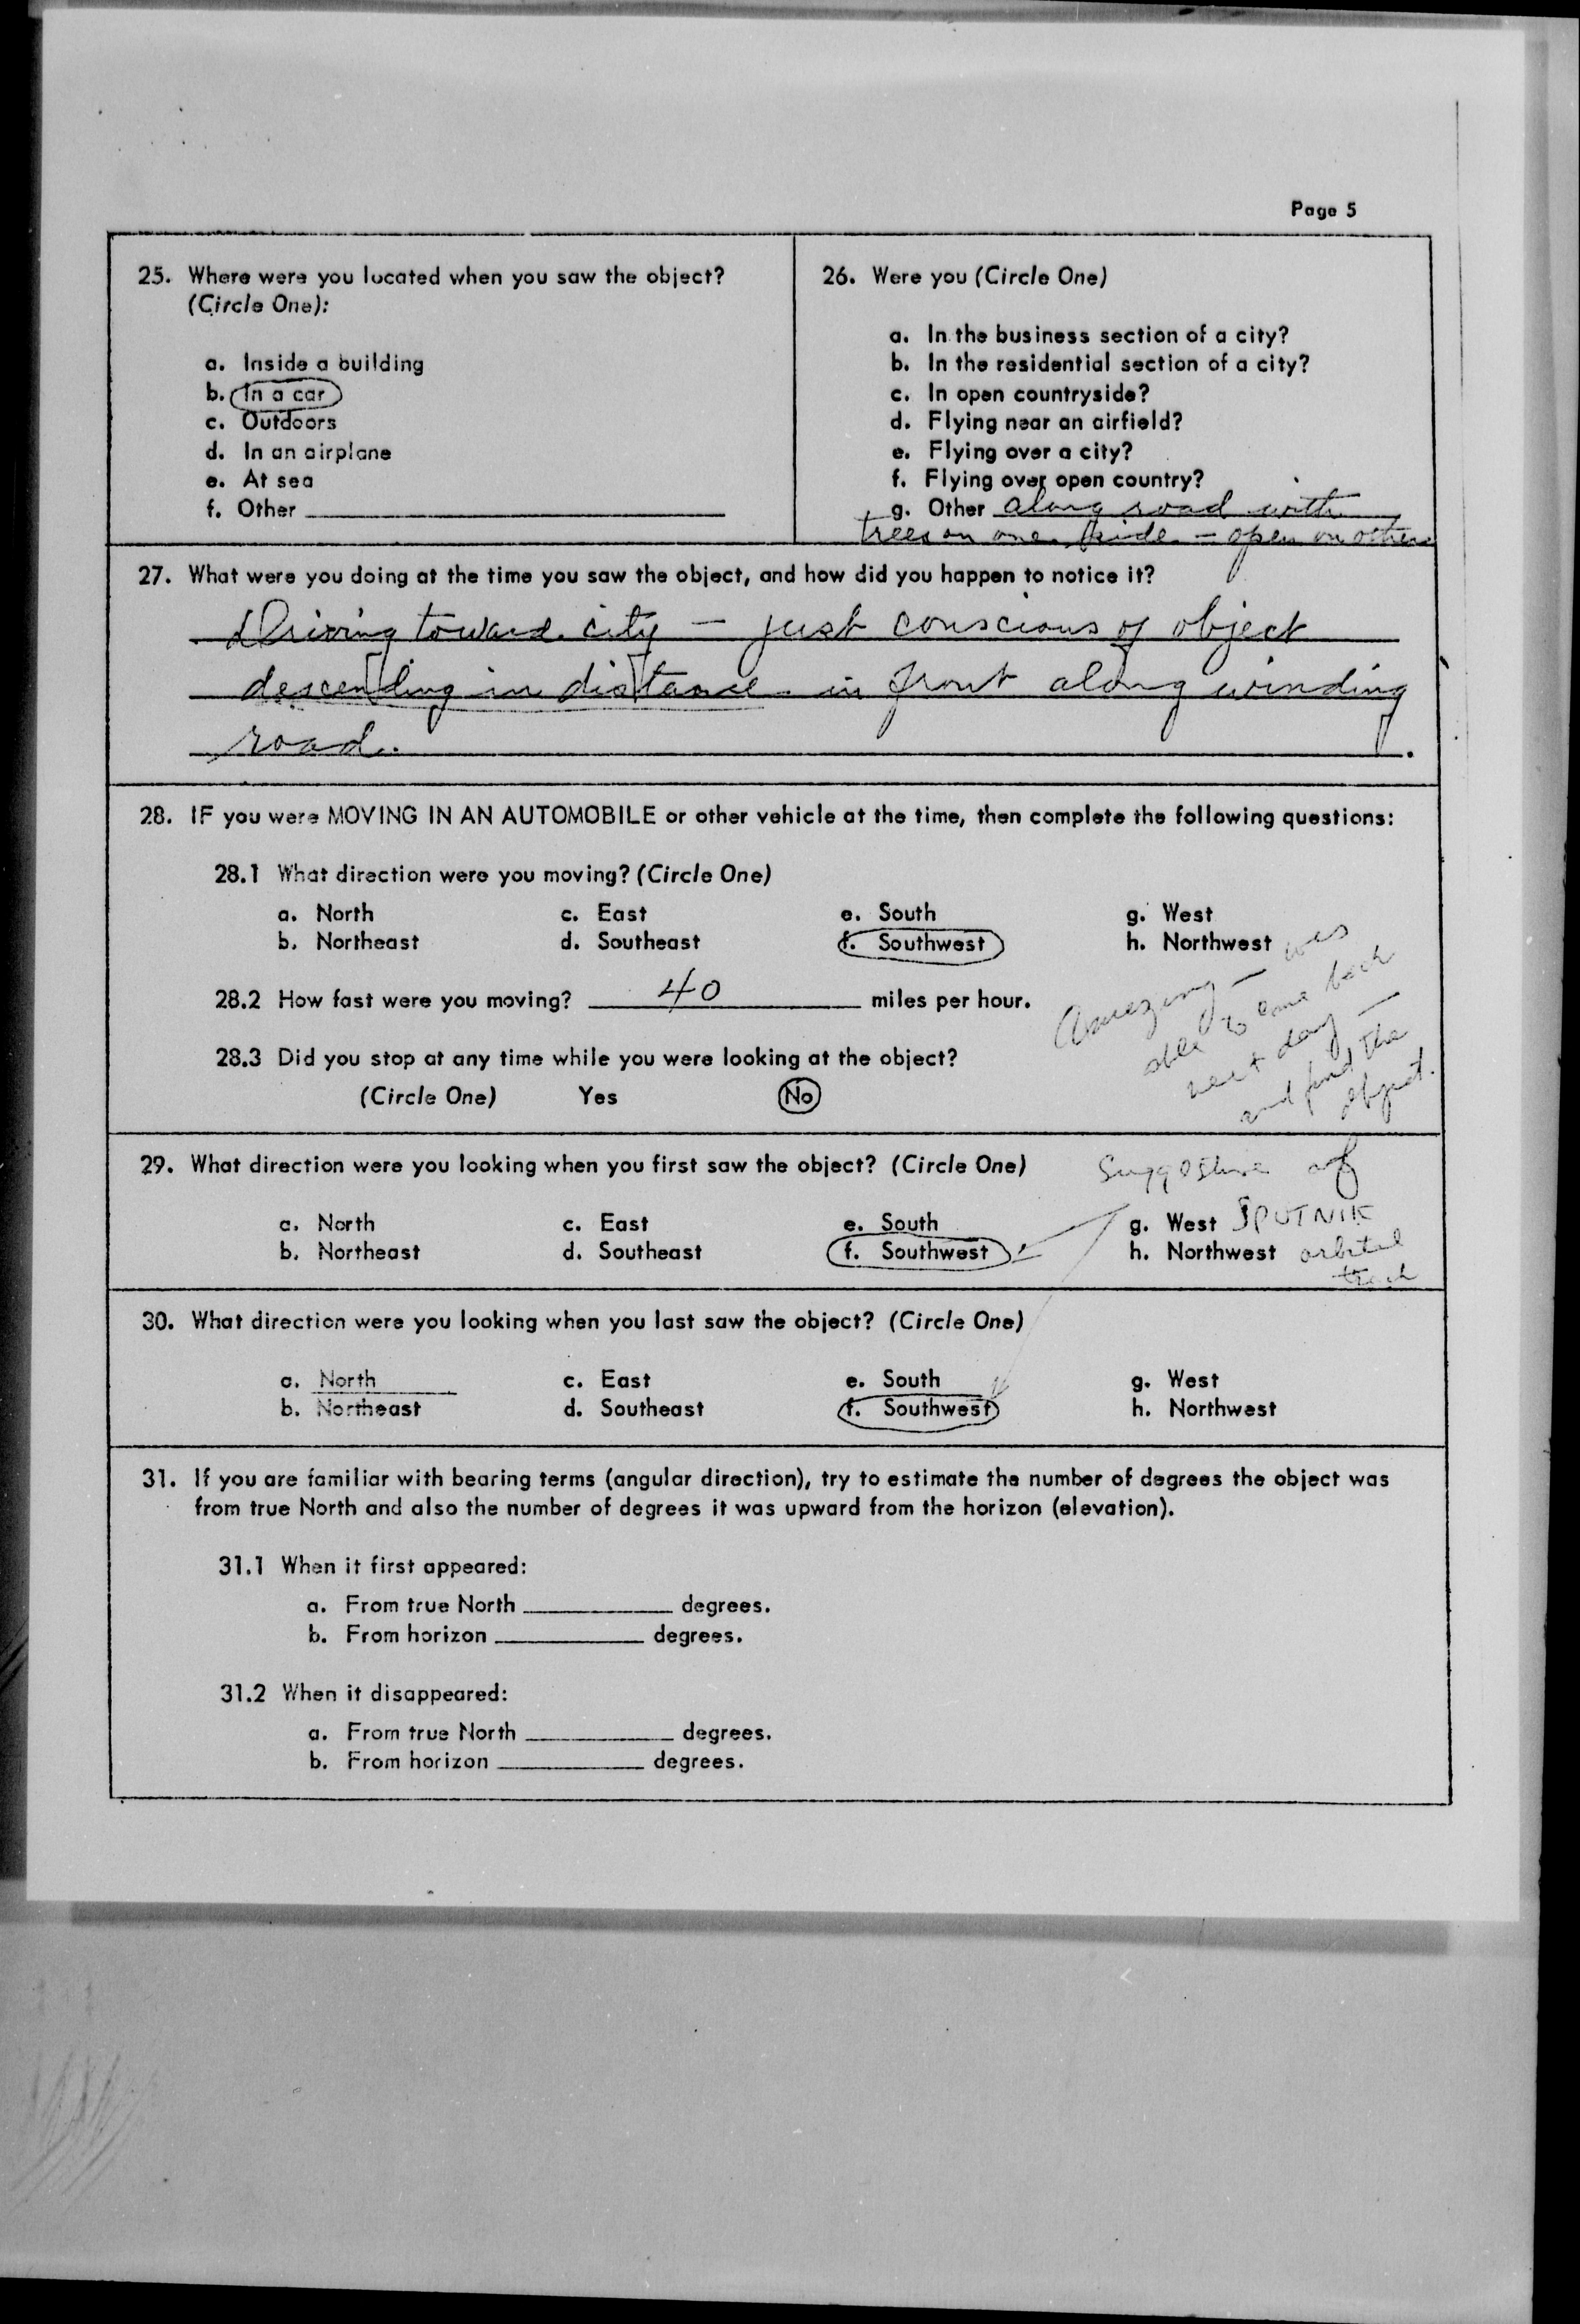 Page 5
25. Where were you located when you saw the object?
(Circle One):
a. Inside a building
b. In a car
c. Outdoors
d. In an airplane
e. At sea
f. Other
26. Were you (Circle One)
a. In the business section of a city?
b. In the residential section of a city?
c. In open countryside?
d. Flying near an airfield?
e. Flying over a city?
f. Flying over open country?
g. Other along road with
trees on one side - open on other
27. What were you doing at the time you saw the object, and how did you happen to notice it?
Driving toward city — just conscious of object
descending in distance in front along winding
road.
28. IF you were MOVING IN AN AUTOMOBILE or other vehicle at the time, then complete the following questions:
28.1 What direction were you moving? (Circle One)
a. North c. East e. South g. West
b. Northeast d. Southeast f. Southwest h. Northwest
28.2 How fast were you moving? 40 miles per hour.
28.3 Did you stop at any time while you were looking at the object?
(Circle One) Yes No
Amazing — was
able to come back
next day —
and find the
object.
29. What direction were you looking when you first saw the object? (Circle One)
a. North c. East e. South g. West
b. Northeast d. Southeast f. Southwest h. Northwest
Suggestive of
SPUTNIK
orbital
track
30. What direction were you looking when you last saw the object? (Circle One)
a. North c. East e. South g. West
b. Northeast d. Southeast f. Southwest h. Northwest
31. If you are familiar with bearing terms (angular direction), try to estimate the number of degrees the object was
from true North and also the number of degrees it was upward from the horizon (elevation).
31.1 When it first appeared:
a. From true North degrees.
b. From horizon degrees.
31.2 When it disappeared:
a. From true North degrees.
b. From horizon degrees.